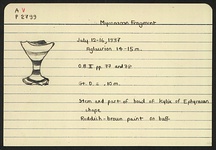 A V
P 2733
Mycenaean Fragment
July 12-16, 1937
14-15 m.
O.B. II pp. 77 and
Gr. D. c. .10 m.
Stem and part of bowl of kylix of Ephyraean
shape
Reddish-brown paint on buff.